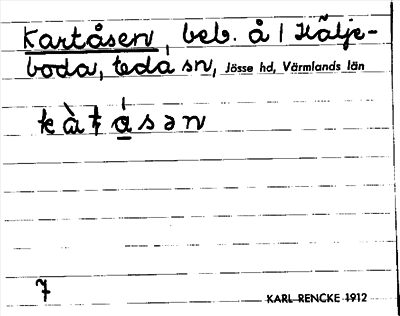 Kartåsen, beb. å 1 Kälje-
boda, Eda sn, Jösse hd, Värmlands län
kàtåsən
7
KARL RENCKE 1912